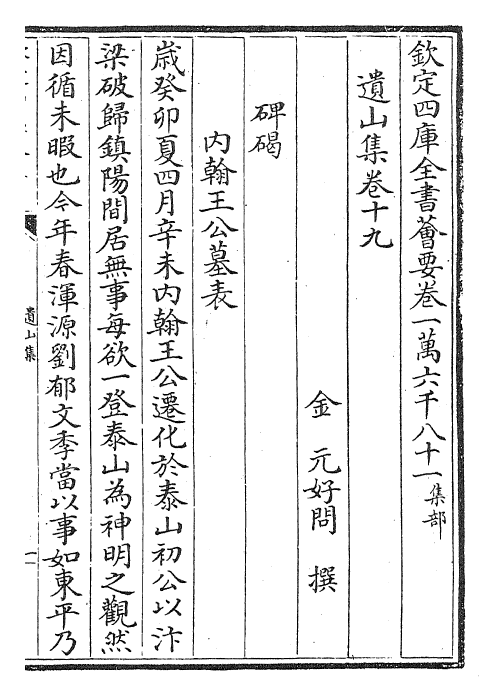 欽定四庫全書薈要卷一萬六千八十一集部
遺山集卷十九
金 元好問 撰
碑碣
内翰王公墓表
歳癸卯夏四月辛未内翰王公遷化於泰山初公以汴
梁破歸鎮陽間居無事每欲一登泰山為神明之觀然
因循未暇也今年春渾源劉郁文季當以事如東平乃
遺山集
一